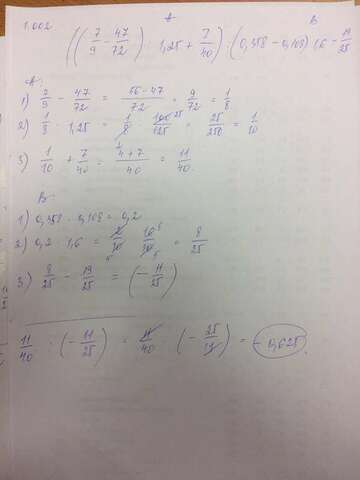 1.002
A B
((7/9 - 47/72) · 1,25 + 7/40) : (0,358 - 0,108) · 1,6 - 19/25
A:
1) 7/9 - 47/72 = 56-47/72 = 9/72 = 1/8
2) 1/8 · 1,25 = 1/8 · = 25/250 = 1/10
3) 1/10 + 7/40 = 4+7/40 = 11/40
B:
1) 0,358 - 0,108 = 0,2
2) 0,2 · 1,6 = 2/10 · 16/10 = 8/25
3) 8/25 - 19/25 = (- 11/25)
11/40 : (- 11/25) = 11/40 · (- 25/11) = - 0,625